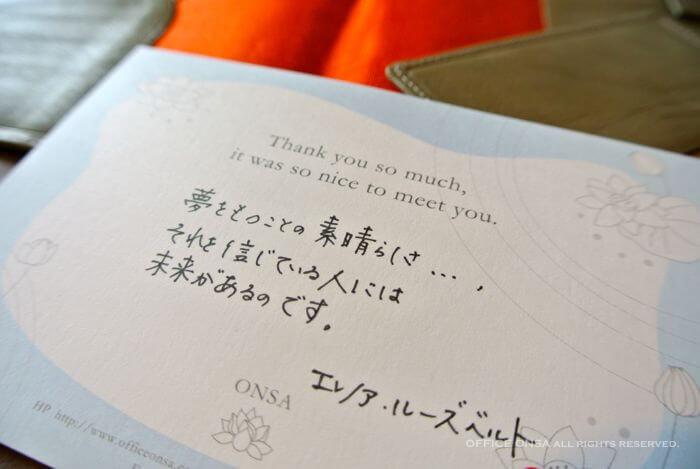 Thank you so much,
it was so nice to meet you.
夢をもつことの 素晴らしさ…,
それを信じている人には
未来があるのです。
エレノア・ルーズベルト
ONSA
HP http://www.officeonsa.c
OFFICE ONSA ALL RIGHTS RESERVED.